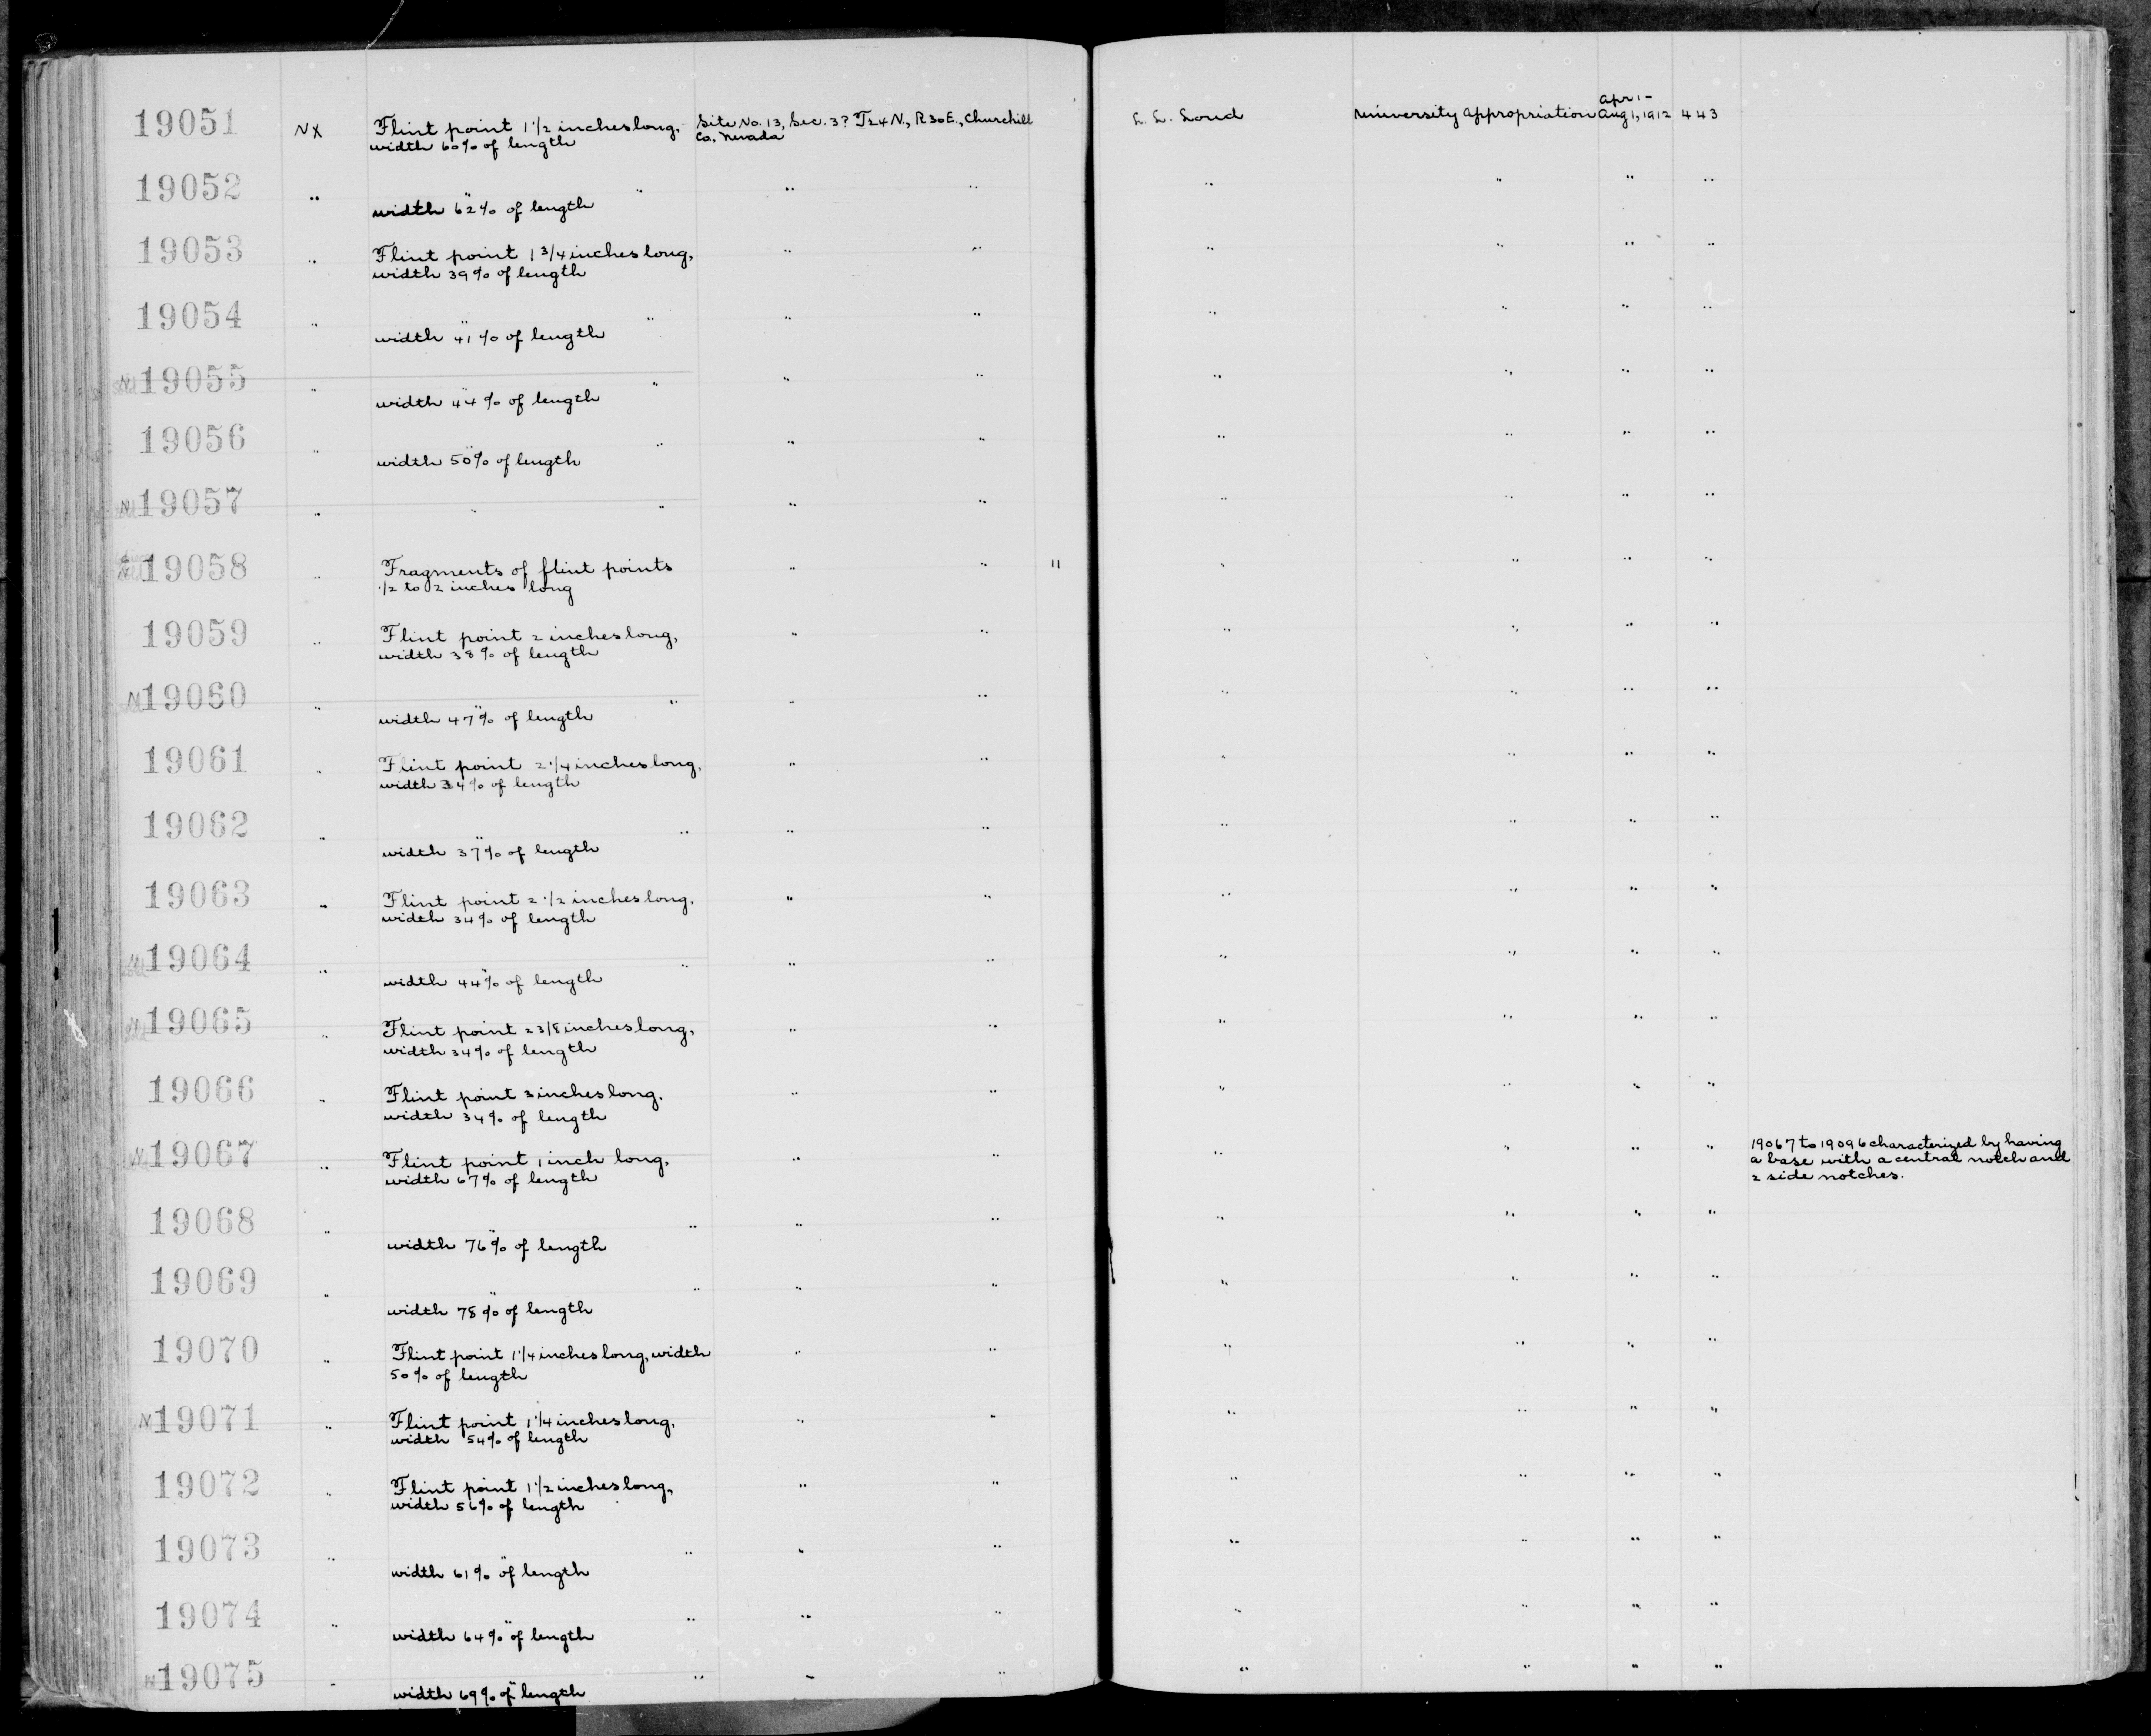 19051 NX Flint point 1 1/2 inches long, Site No. 13, Sec. 3? T24N., R30E., Churchill L. L. Loud University Appropriation Apr 1- Aug 1, 1912 443
width 60% of length Co., Nevada
19052 " " " " " " " " "
width 62% of length
19053 " Flint point 1 3/4 inches long, " " " " " "
width 39% of length
19054 " " " " " " " " "
width 41% of length
19055 " " " " " " " " "
width 44% of length
19056 " " " " " " " " "
width 50% of length
19057 " " " " " " " " "
19058 " Fragments of flint points " " 11 " " " "
1/2 to 2 inches long
19059 " Flint point 2 inches long, " " " " " "
width 38% of length
19060 " " " " " " " " "
width 47% of length
19061 " Flint point 2 1/4 inches long, " " " " " "
width 34% of length
19062 " " " " " " " " "
width 37% of length
19063 " Flint point 2 1/2 inches long, " " " " " "
width 34% of length
19064 " " " " " " " "
width 44% of length
19065 " Flint point 2 3/8 inches long, " " " " " "
width 34% of length
19066 " Flint point 3 inches long, " " " " " "
width 34% of length
19067 " Flint point 1 inch long, " " " " " " 19067 to 19096 characterized by having
width 67% of length a base with a central notch and
2 side notches.
19068 " " " " " " " " "
width 76% of length
19069 " " " " " " " " "
width 78% of length
19070 " Flint point 1 1/4 inches long, width " " " " " "
50% of length
N 19071 " Flint point 1 1/4 inches long, " " " " " "
width 54% of length
19072 " Flint point 1 1/2 inches long, " " " " " "
width 56% of length
19073 " " " " " " " " "
width 61% of length
19074 " " " " " " " " "
width 64% of length
19075 " " " " " " " " "
width 69% of length